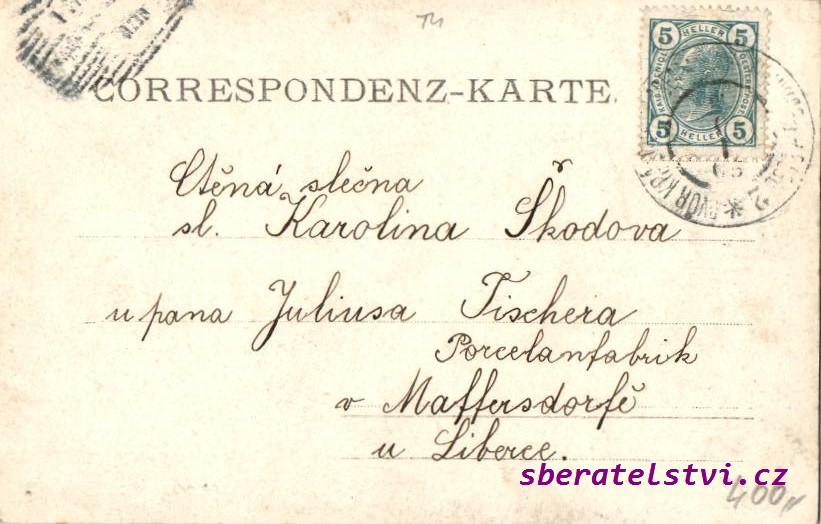 CORRESPONDENZ-KARTE.
5 HELLER 5
5 HELLER 5
Ctěná slečna
sl. Karolina Škodova
u pana Juliusa Fischera
Porcelanfabrik
v Maffersdorfě
u Liberce.
sberatelstvi.cz
400